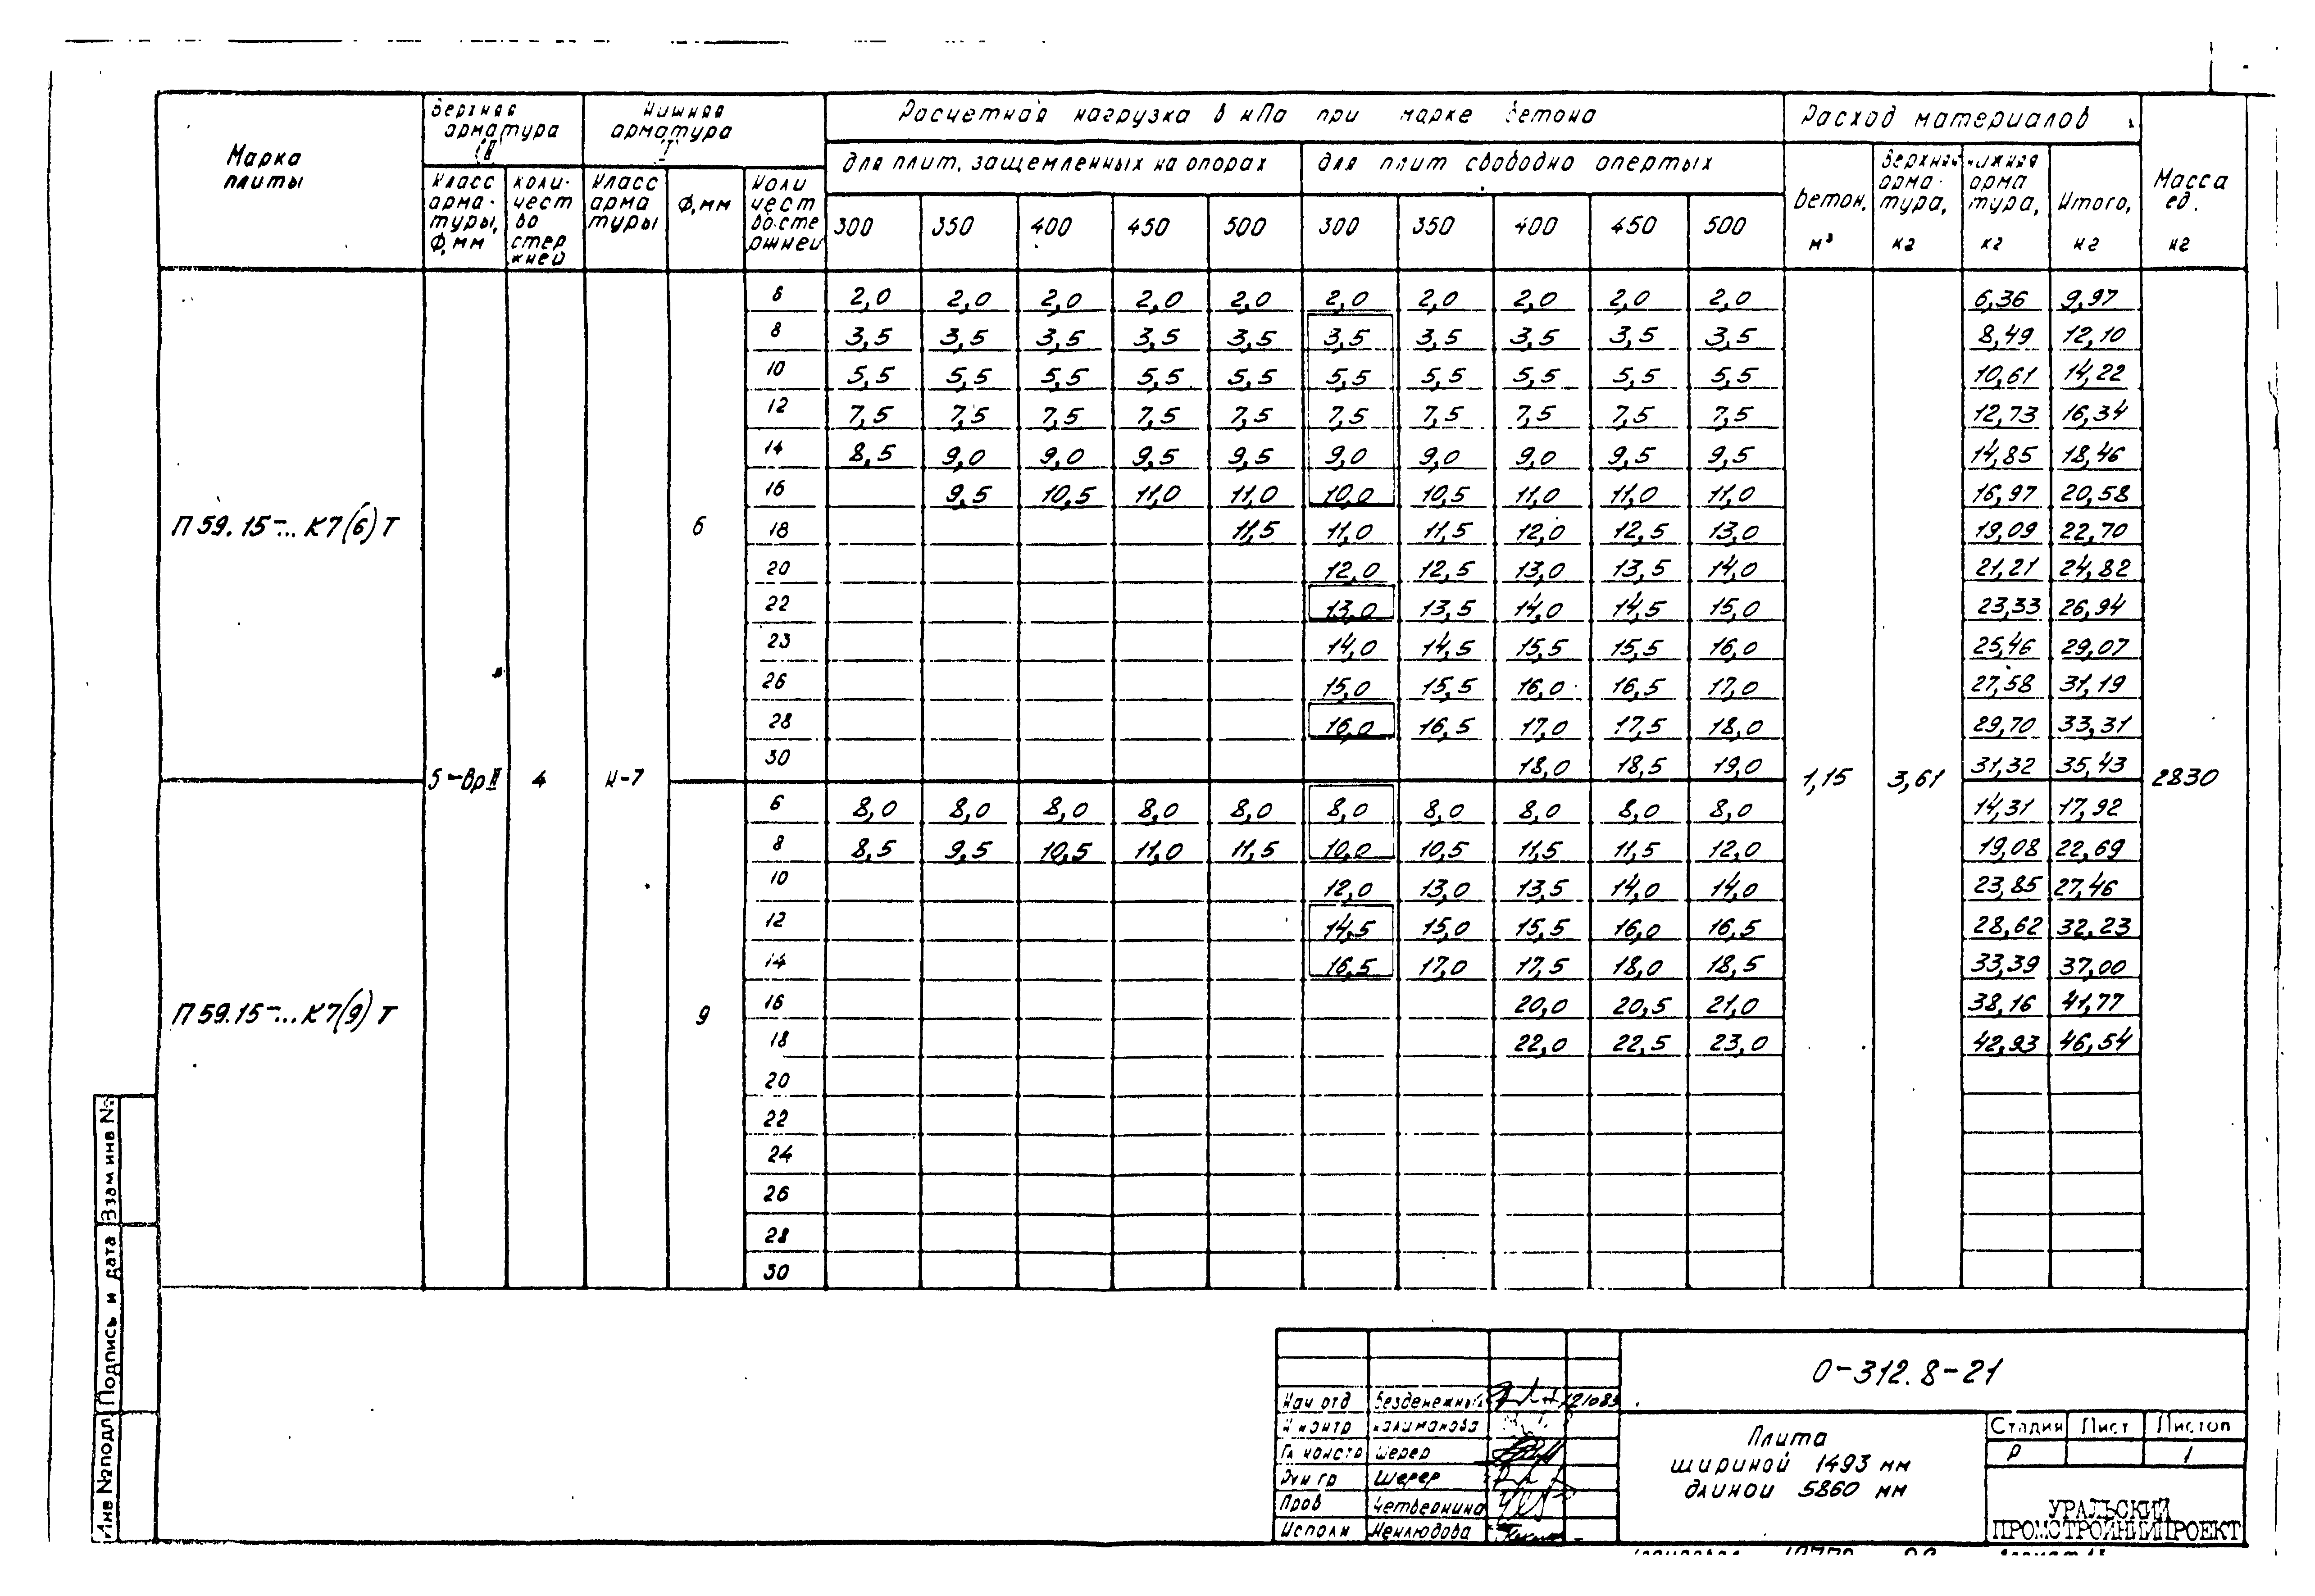 Марка плиты
Верхняя арматура (II)
Класс арматуры, Ф, мм
Количество стержней
Нижняя арматура (I)
Класс арматуры
Ф, мм
Количество стержней
Расчетная нагрузка в кПа при марке бетона
для плит, защемленных на опорах
для плит свободно опертых
300 350 400 450 500 300 350 400 450 500
Расход материалов
Бетон, м³
Верхняя арматура, кг
Нижняя арматура, кг
Итого, кг
Масса ед. кг
6 2,0 2,0 2,0 2,0 2,0 2,0 2,0 2,0 2,0 2,0 6,36 9,97
8 3,5 3,5 3,5 3,5 3,5 3,5 3,5 3,5 3,5 3,5 8,49 12,10
10 5,5 5,5 5,5 5,5 5,5 5,5 5,5 5,5 5,5 5,5 10,61 14,22
12 7,5 7,5 7,5 7,5 7,5 7,5 7,5 7,5 7,5 7,5 12,73 16,34
14 8,5 9,0 9,0 9,5 9,5 9,0 9,0 9,0 9,5 9,5 14,85 18,46
16 9,5 10,5 11,0 11,0 10,0 10,5 11,0 11,0 11,0 16,97 20,58
П 59.15-... К7(6)Т 6 18 11,5 11,0 11,5 12,0 12,5 13,0 19,09 22,70
20 12,0 12,5 13,0 13,5 14,0 21,21 24,82
22 13,0 13,5 14,0 14,5 15,0 23,33 26,94
23 14,0 14,5 15,5 15,5 16,0 25,46 29,07
26 15,0 15,5 16,0 16,5 17,0 27,58 31,19
28 16,0 16,5 17,0 17,5 18,0 29,70 33,31
30 18,0 18,5 19,0 31,32 35,43
5-ВрII 4 К-7 1,15 3,61 2830
6 8,0 8,0 8,0 8,0 8,0 8,0 8,0 8,0 8,0 8,0 14,31 17,92
8 8,5 9,5 10,5 11,0 11,5 10,0 10,5 11,5 11,5 12,0 19,08 22,69
10 12,0 13,0 13,5 14,0 14,0 23,85 27,46
12 14,5 15,0 15,5 16,0 16,5 28,62 32,23
14 16,5 17,0 17,5 18,0 18,5 33,39 37,00
П 59.15-... К7(9)Т 9 16 20,0 20,5 21,0 38,16 41,77
18 22,0 22,5 23,0 42,93 46,54
20
22
24
26
28
30
Инв №подл Подпись и дата Взам инв №
О-312.8-21
Нач отд Безденежный 121083
Н контр Калиманова
Гл констр Шерер
Рук гр Шерер
Пров Четвернина
Исполн Неклюдова
Плита
шириной 1493 мм
длиной 5860 мм
Стадия Лист Листов
Р 1
УРАЛЬСКИЙ
ПРОМСТРОЙНИИПРОЕКТ